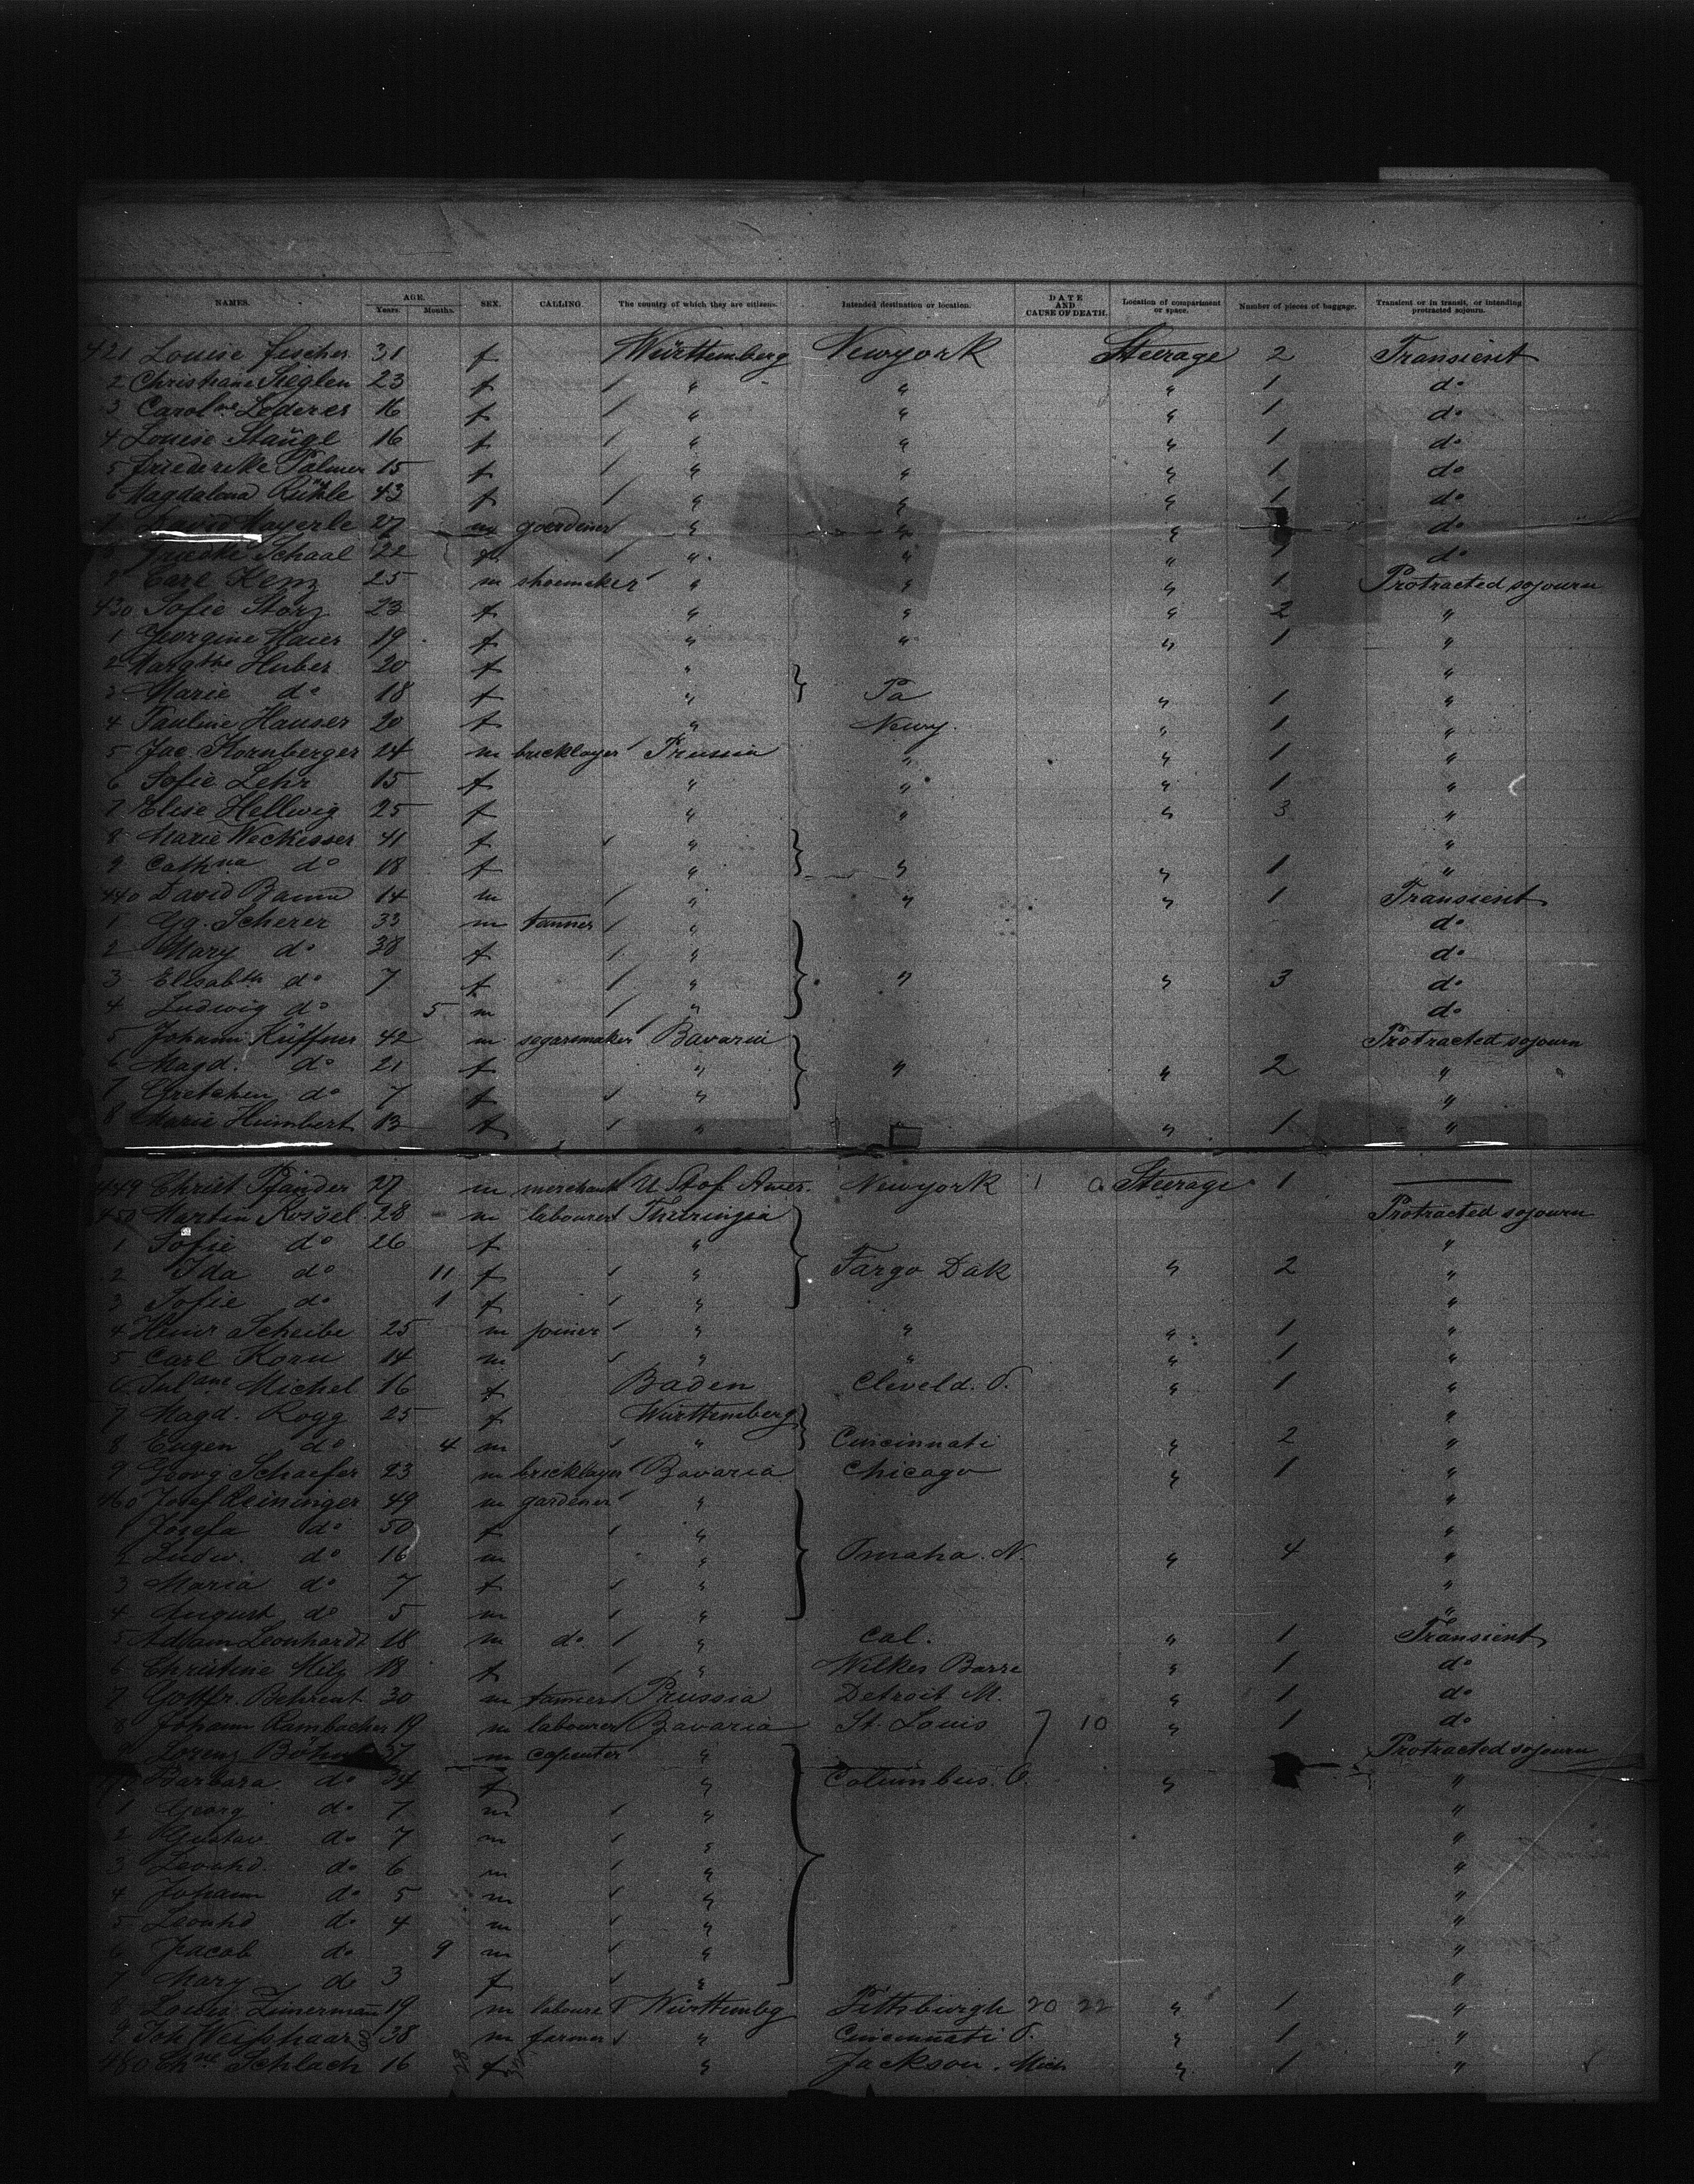 NAMES. AGE. Years. Months. SEX. CALLING. The country of which they are citizens. Intended destination or location. DATE AND CAUSE OF DEATH. Location of compartment or space. Number of pieces of baggage. Transient or in transit, or intending protracted sojourn.
421 Louise Fischer 31 f Württemberg Newyork Steerage 2 Transient
2 Christiane Sieglen 23 f / " " " 1 do
3 Carolne Lederer 16 f / " " " 1 do
4 Louise Stängl 16 f / " " " 1 do
5 Friedericke Palmer 15 f / " " " 1 do
6 Magdalena Rühle 43 f / " " " 1 do
David Mayerle 27 m goerdiner / " " " do
Schaal 22 f / " " " do
9 Carl Kenz 25 m shoemaker / " " " 1 Protracted sojourn
430 Sofie Storz 23 f " " " 2 "
1 Georgine Maier 19 f " " " 1 "
2 Margthe Huber 20 f " "
3 Marie do 18 f " Pa " 1 "
4 Pauline Hauser 20 f " Newy. " 1 "
5 Jac. Kornberger 24 m bricklayer / Prussia " " 1 "
6 Sofie Lehr 15 f " " " 1 "
7 Elise Hellwig 25 f " " " 3 "
8 Marie Weckesser 41 f / " "
9 Cathna do 18 f " " " 1 "
440 David Baum 14 m / " " " 1 Transient
1 Gg. Scherer 33 m tanner / " do
2 Mary do 38 f / " do
3 Elisabth do 7 f / " " " 3 do
4 Ludwig do 5 m / " do
5 Johann Küffner 42 m segarsmaker / Bavaria Protracted sojourn
6 Magd. do 21 f " " " 2 "
7 Gretchen do 7 f / " "
8 Marie Humbert 13 f / " " 1 "
449 Christ Pfänder 27 m merchant / U St of Amer. Newyork 1 a Steerage 1
450 Martin Rössel 28 m labourer / Thüringia Protracted sojourn
1 Sofie do 26 f " "
2 Ida do 11 f / " Fargo Dak " 2 "
3 Sofie do 1 f / " "
4 Heinr Scheibe 25 m joiner / " " " 1 "
5 Carl Korn 14 m / " " " 1 "
6 Julane Michel 16 f Baden Cleveld. O. " 1 "
7 Magd. Rogg 25 f Württemberg "
8 Eugen do 4 m / " Cincinnati " 2 "
9 Georg Schaefer 23 m bricklayer / Bavaria Chicago " 1 "
460 Josef Reininger 49 m gardener / " "
1 Josefa do 50 f / " "
2 Ludw. do 16 m " Omaha. N. " 4 "
3 Maria do 7 f / " "
4 August do 5 m / " "
5 Adam Leonhardt 18 m do. / " Cal. " 1 Transient
6 Christine Milz 18 f / " Wilkes Barre " 1 do
7 Gottfr. Behrent 30 m tanner / Prussia Detroit M. " 1 do
8 Johann Rambacher 19 m labourer / Bavaria St. Louis 7 10 " 1 do
9 Lorenz 37 m capenter " Protracted sojourn
Barbara do 34 f " Columbus. O. " "
1 Georg do 7 m / " "
2 Gustav do 7 m / " "
3 Leonhd. do 6 m / " "
4 Johann do 5 m / " "
5 Leonhd do 4 m / " "
6 Jacob do 9 m / " "
7 Mary do 3 f / " "
8 Louis Zimerman 19 m laboure / Württembg Pittsburgh 20 22 " 1 "
9 Joh Weisshaar 38 m farmer / " Cincinnati O. " 1 "
480 Chne Schlach 16 f " Jackson. Mich " 1 "